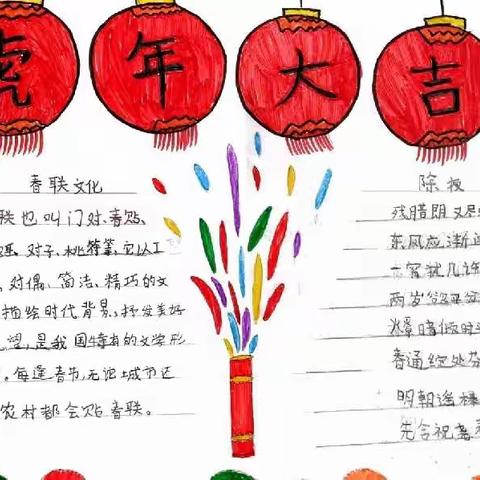 虎年大吉
春联文化
联也叫门对、春贴、
对子、桃符等,它以工
、对偶、简洁、精巧的文
描绘时代背景,抒发美好
望,是我国特有的文学形
。每逢春节,无论城市还
农村都会贴春联。
除夜
残腊即又尽
东风应渐闻
一宵犹几许
两岁欲平分
燃暗催时
春通绽处芬
明朝遥
先合祝尧